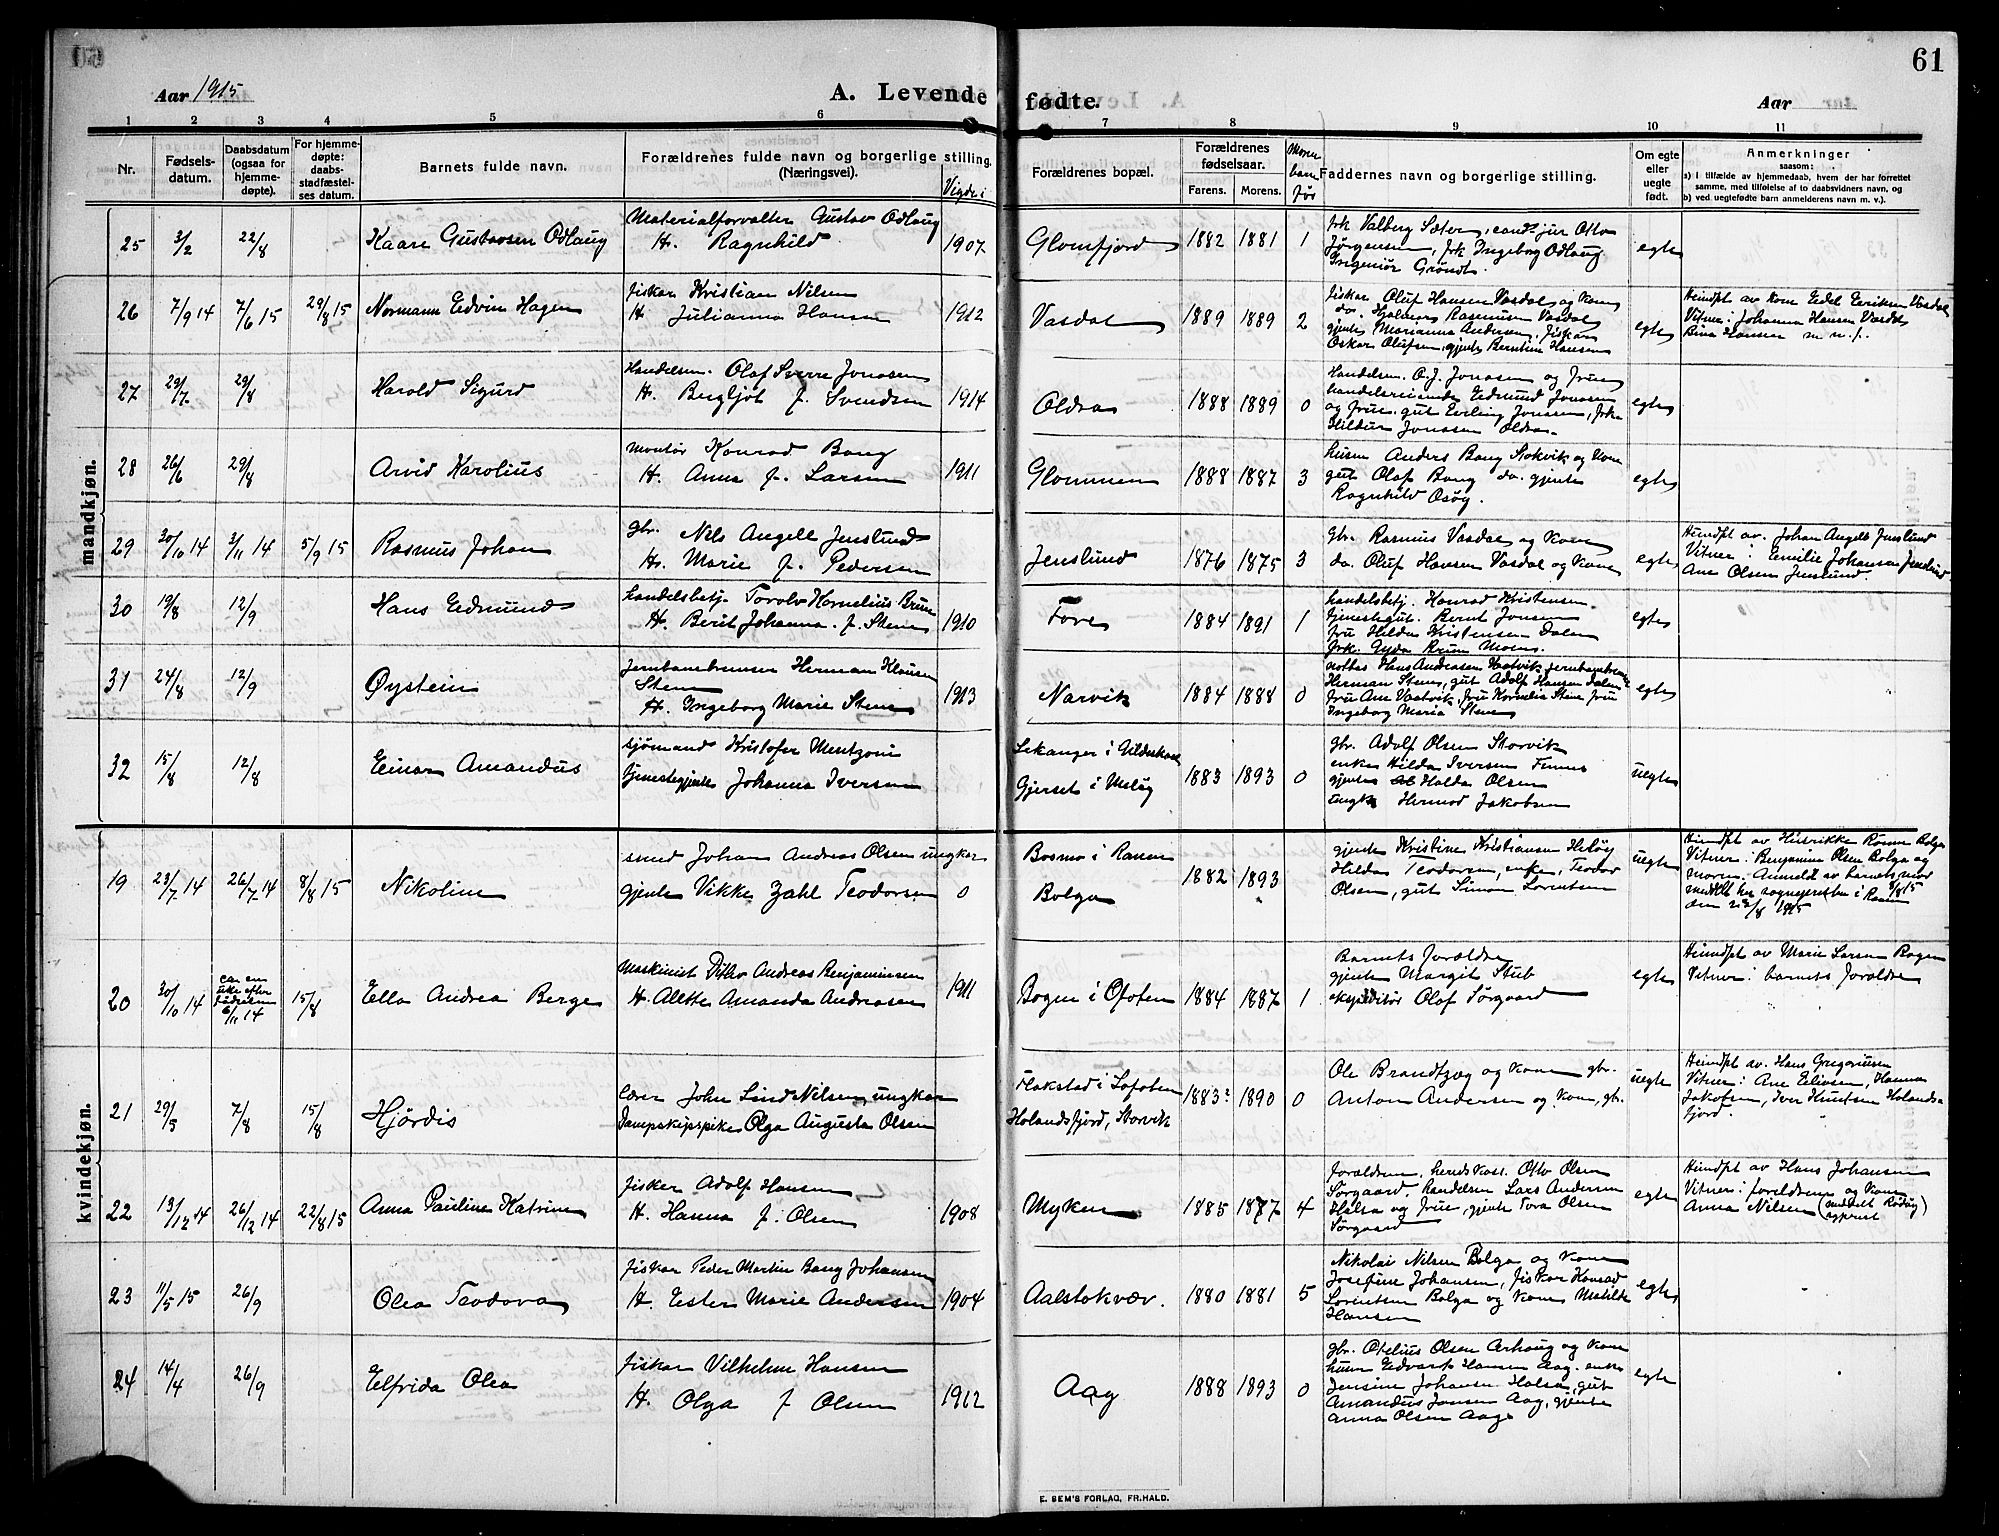 61
Aar 1915
A. Levende fødte.
Aar
1 2 3 4 5 6 7 8 9 10 11
Nr.
Fødsels-
datum.
Daabsdatum
(ogsaa for
hjemme-
døpte).
For hjemme-
døpte:
daabs-
stadfæstel-
ses datum.
Barnets fulde navn.
Forældrenes fulde navn og borgerlige stilling.
(Næringsvei).
Vigde i
Forældrenes bopæl.
Forældrenes
fødselsaar.
Farens. Morens.
Faddernes navn og borgerlige stilling.
Om egte
eller
uegte
født.
Anmerkninger
saasom:
a) I tilfælde av hjemmedaab, hvem der har forrettet
samme, med tilføielse af to daabsvidners navn, og
b) ved uegtefødte barn anmelderens navn m. v.).
mandkjøn.
25 3/2 22/8 Kaare Gustavsen Odlaug
Materialforvalter Gustav Odlaug
H. Ragnhild
1907 Glomfjord 1882 1881 1
frk Valberg Sæter, cand. jur Otto
Jørgensen, frk Ingeborg Odlaug
Ingeniør Grøndt.
egte
26 7/9 14 7/6 15 29/8 15 Normann Edvin Hagen
fisker Kristian Nilsen
H. Julianna Hansen
1912 Vasdal 1889 1889 2
fisker Oluf Hansen Vasdal og kone
do. Hjalmar Rasmusen Vasdal
gjente Marianna Andersen, fisker
Oskar Olufsen, gjente Berntine Hansen
egte
Hjemdpt av kone Edel Eriksen Vasdal
Vitner: Johanna Hansen Vasdal
Bina Hansen
27 29/7 29/8 Harald Sigurd
Handelsm. Olaf Sverre Jonasen
H. Bergljot f. Svendsen
1914 Oldra 1888 1889 0
Handelsm. O. J. Jonasen og frue
handelsreisende Edmund Jonasen
og frue. gut Erling Jonasen, frk.
Hildur Jonasen Oldra.
egte
28 26/6 29/8 Arvid Karolius
montør Konrad Bang
H. Anna f. Larsen
1911 Glommen 1888 1887 3
husm Anders Bang Stokvik og kone
gut Olaf Bang do. gjente
Ragnhild Osøy.
egte
29 30/10 14 3/11 14 5/9 15 Rasmus Johan
gbr. Nils Angell Jenslund
H. Marie f. Pedersen
Jenslund 1876 1875 3
Gbr. Rasmus Vasdal og kone
do. Oluf Hansen Vasdal og kone
egte
Hjemdpt av. Johan Angell Jenslund
Vitner: Emilie Johansen Jenslund
Ane Olsen Jenslund.
30 19/8 12/9 Hans Edmund
handelsbetj. Torolv Kornelius Brun
H. Berit Johanna f. Stene
1910 Fore 1884 1891 1
handelsbetj. Konrad Kristensen.
tjenestegut. Bernt Jonsen
fru Hilda Kristensen Dalen
frk. Gyda Brun Moens.
egte
31 24/8 12/9 Øystein
Jernbanebremser Herman Klausen
Stene
H. Ingeborg Marie Stene
1913 Narvik 1884 1888 0
notbas Hans Andreasen Vastvik jernbanebremser
Herman Stene, gut Adolf Hansen Dalen
fru Ane Vastvik, fru Kornelia Stene fru
Ingeborg Maria Stene
egte
32 15/8 12/8 Einar Amandus
sjømand Kristofer Mentzoni
tjenestegjente Johanna Iversen
Sekanger i Gildeskaal
Gjerset i Meløy
1883 1893 0
gbr. Adolf Olsen Storvik
enke Hilda Iversen Finnes
gjente Halda Olsen
ungk Hermod Jakobsen
uegte
kvindekjøn.
19 23/7 14 26/7 14 8/8 15 Nikoline
smed Johan Andreas Olsen ungkar
gjente Vikke Zahl Teodorsen
0
Bosmo i Ranen
Bolga
1882 1893
gjente Kristine Kristiansen Heløy
Hilda Teodorsen, enke, Teodor
Olsen, gut Simon Lorentsen
uegte
Hjemdpt av Henrikke Rønne Bolga
Vitner: Benjamine Olsen Bolga og
moren. Anmeldt av barnets mor 8/8 15
meddelt hr sognepresten i Ranen
den 28/8 1915
20 30/10 14
ca. en
uke efter
fødselen
6/11 14
15/8 Ella Andrea Berge
Maskinist Ditlev Andreas Benjaminsen
H. Alette Amanda Andreasen
1911 Bogen i Ofoten 1884 1887 1
Barnets forældre
gjente Margit Stub
ekspeditør Olaf Sørgaard
egte
Hjemdpt av Marie Larsen Bogen
Vitner: barnets forældre
21 29/5 7/8 15/8 Hjørdis
lærer John Lind Nilsen, ungkar
Dampskipspike Olga Augusta Olsen
Flakstad i Lofoten
Holandsfjord, Storvik
1883? 1890 0
Ole Brandtzæg og kone gbr.
Anton Andersen og kone, gbr.
uegte
Hjemdpt av. Hans Gregoriusen
Vitner: Ane Elivsen, Hanna
Jakobsen, Iver Knutsen Holands-
fjord.
22 13/12 14 26/12 14 22/8 15 Anna Pauline Katrine
fisker Adolf Hansen
H. Hanna f. Olsen
1908 Myken 1885 1877 4
forældrene, lendskast. Otto Olsen
Sørgaard. Handelsm Lars Andersen
Halsa og frue, gjente Tora Olsen
Sørgaard
egte
Hjemdpt av Hans Johansen
Vitner: foreldrene og kone
Anna Nilsen (meddelt Rødøy
sogneprest)
23 11/5 15 26/9 Olea Teodora
fisker Peder Martin Bang Johansen
H. Ester Marie Andersen
1904 Aalstokvær. 1880 1881 5
Nikolai Nilsen Bolga og kone
Josefine Johansen, fisker Konrad
Lorentsen Bolga og kone Matilde
Hansen
egte
24 14/4 26/9 Elfrida Olea
fisker Vilhelm Hansen
H. Olga f. Olsen
1912 Aag 1888 1893 0
gbr. Otelius Olsen Arhaug og kone
husm Edvart Hansen Aag. enke
Jensine Johansen Halsa, gut
Amandus Jonsen Aag, gjente
Anna Olsen Aag
egte
E. SEM'S FORLAG, FR.HALD.